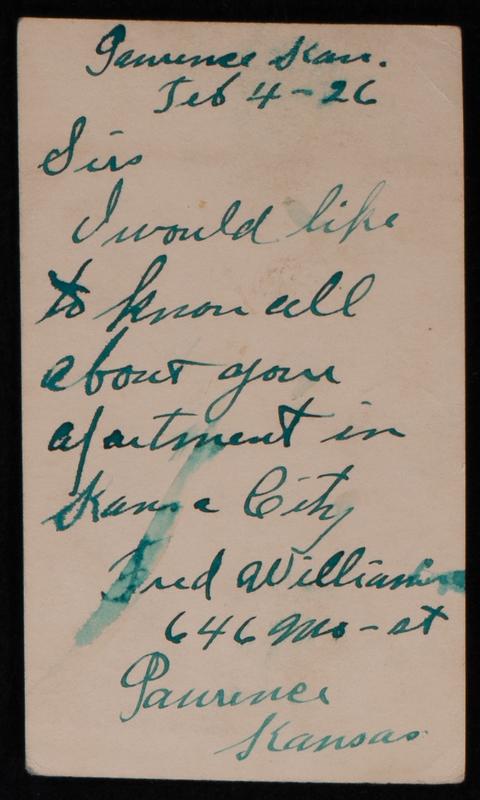 Lawrence Kan.
Feb 4-26
Sirs
I would like
to know all
about your
apartment in
Kansa City
Fred Williams
646 Mo-st
Lawrence
Kansas